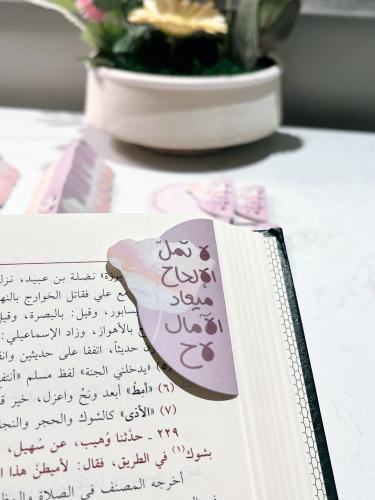 لا تملّ
الإلحاح
ميعاد
الآمال
لاح
برزة» نضلة بن عبيد، نزل
مع علي فقاتل الخوارج بالنهر
سابور، وقيل: بالبصرة، وقيل
بالأهواز، وزاد الإسماعيلي:
حديثاً، اتفقا على حديثين وانف
(٥) «يدخلني الجنة» لفظ مسلم «أنتفع
(٦) «أمِطْ» أبعد ونحْ واعزل، خير
(٧) «الأذى» كالشوك والحجر والنجا
٢٢٩ ـ حدّثنا وُهيب، عن سُهيل،
بشوك(١) في الطريق، فقال: لأميطنّ هذا
أخرجه المصنف في الصلاة